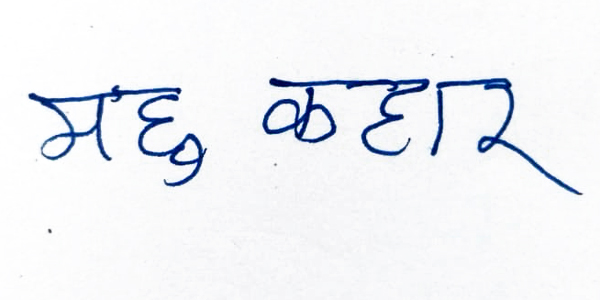 मछु कहार